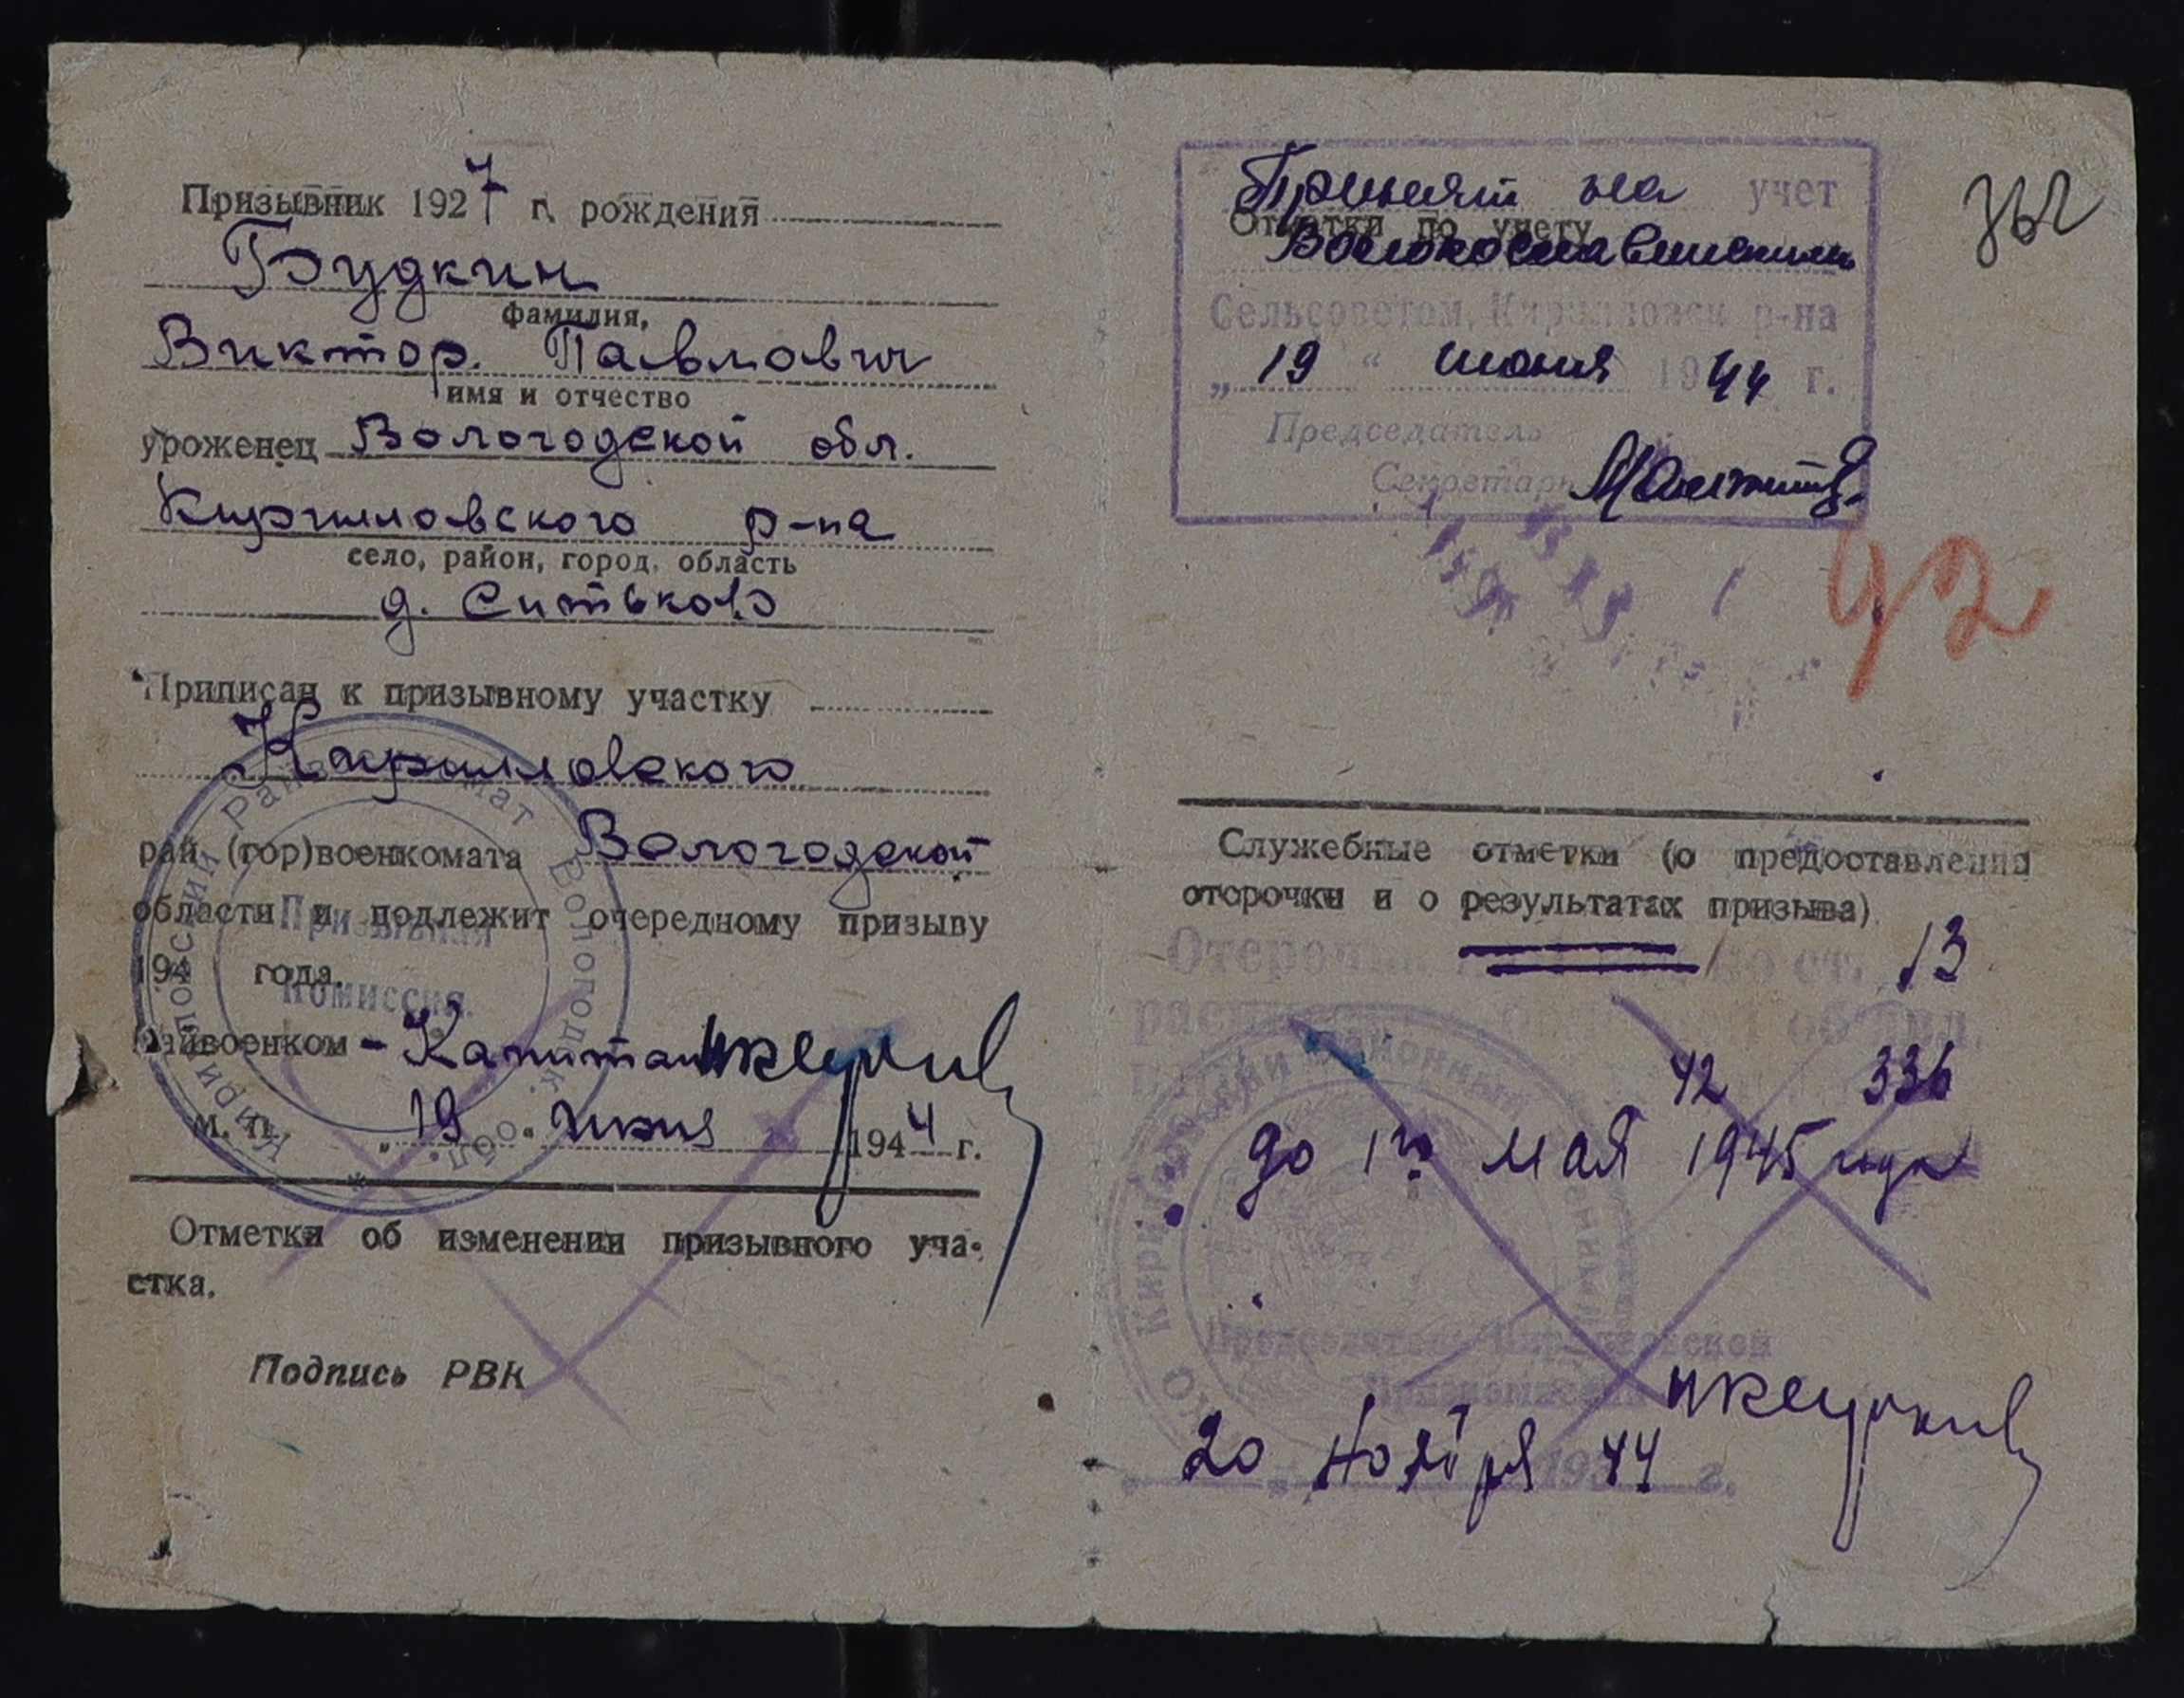 Призывник 1927 г. рождения
Будкин
фамилия,
Виктор. Павлович
имя и отчество
уроженец Вологодской обл.
Кирилловского р-на
село, район, город, область
д. Ситьково
Приписан к призывному участку
Кирилловского
рай (гор)военкомата Вологодской
области и подлежит очередному призыву
194 года.
Райвоенком - Капитан
М. П. „19“ июня 1944 г.
Отметки об изменении призывного уча-
стка.
Подпись РВК
Кирилловский Райвоенкомат Вологодск. обл.
Призывная
Комиссия.
Принят на учет
Отметки по учету
Волокославинским
Сельсоветом, Кирилловск р-на
„19“ июня 1944 г.
Председатель
Секретарь
92
Служебные отметки (о предоставлении
отсрочки и о результатах призыва).
Отсрочка по ст. 13
42 336
до 1го мая 1945 года
Председатель Кирилловской
Призкомиссии
20 ноября 1944 г.